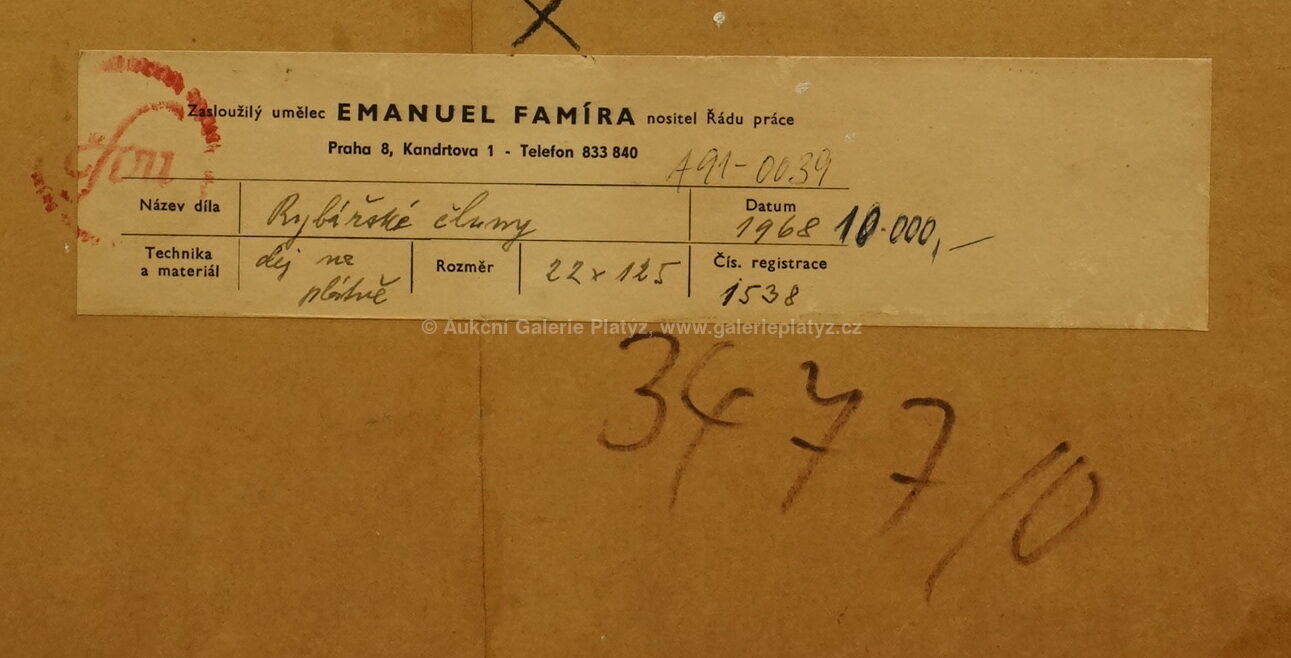 Zasloužilý umělec EMANUEL FAMÍRA nositel Řádu práce
Praha 8, Kandrtova 1 - Telefon 833 840
A91-0039
Název díla Rybářské čluny Datum 1968 10.000,-
Technika a materiál olej na plátně Rozměr 22 x 125 Čís. registrace 1538
© Aukční Galerie Platýz, www.galerieplatyz.cz
3477/0